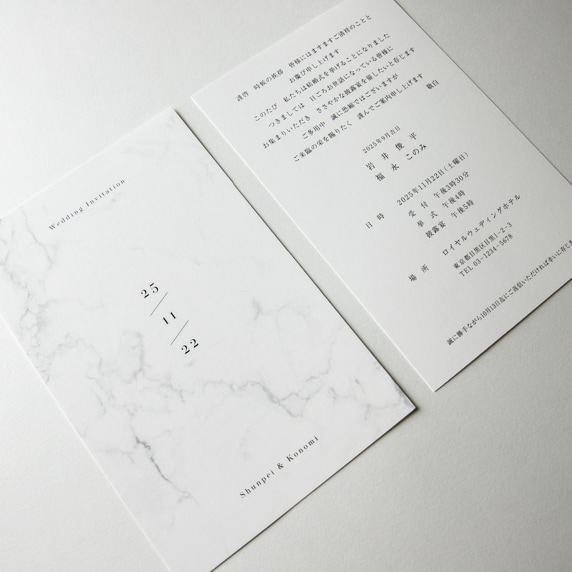 Wedding Invitation
25
11
22
Shunpei & Konomi
謹啓　時候の挨拶　皆様にはますますご清祥のことと
お慶び申し上げます
このたび　私たちは結婚式を挙げることになりました
つきましては　日ごろお世話になっている皆様に
お集まりいただき　ささやかな披露宴を催したいと存じます
ご多用中　誠に恐縮ではございますが
ご来臨の栄を賜りたく　謹んでご案内申し上げます
敬白
2025年9月吉日
岩井　俊平
福永　このみ
日時　2025年11月22日（土曜日）
受付　午後3時30分
挙式　午後4時
披露宴　午後5時
場所　ロイヤルウェディングホテル
東京都目黒区目黒1-2-3
TEL 03-1234-5678
誠に勝手ながら10月13日迄にご返信いただければ幸いに存じ